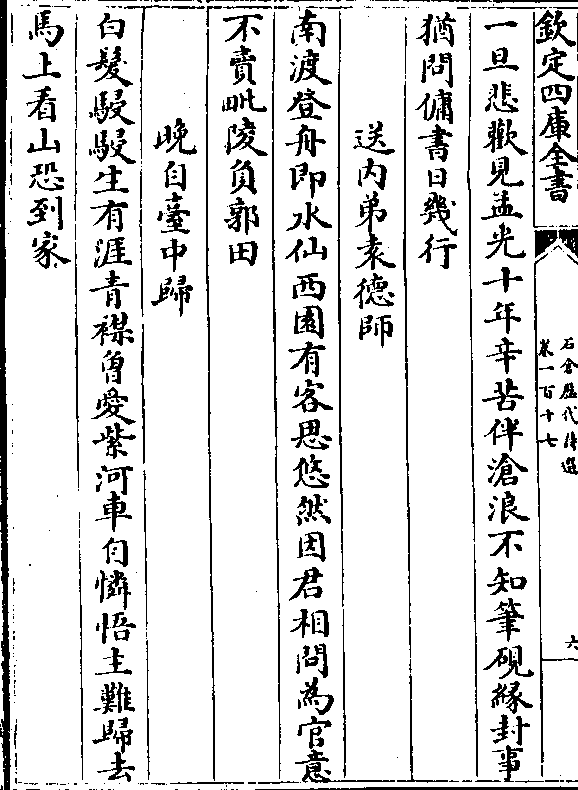 欽定四庫全書
石倉歷代詩選
卷一百十七
六
一旦悲歡見孟光十年辛苦伴滄浪不知筆硯緣封事
猶問傭書日幾行
送内弟袁德師
南渡登舟即水仙西園有客思悠然因君相問為官意
不賣毗陵負郭田
晚自臺中歸
白髮駸駸生有涯青襟曾愛紫河車自憐悟主難歸去
馬上看山恐到家